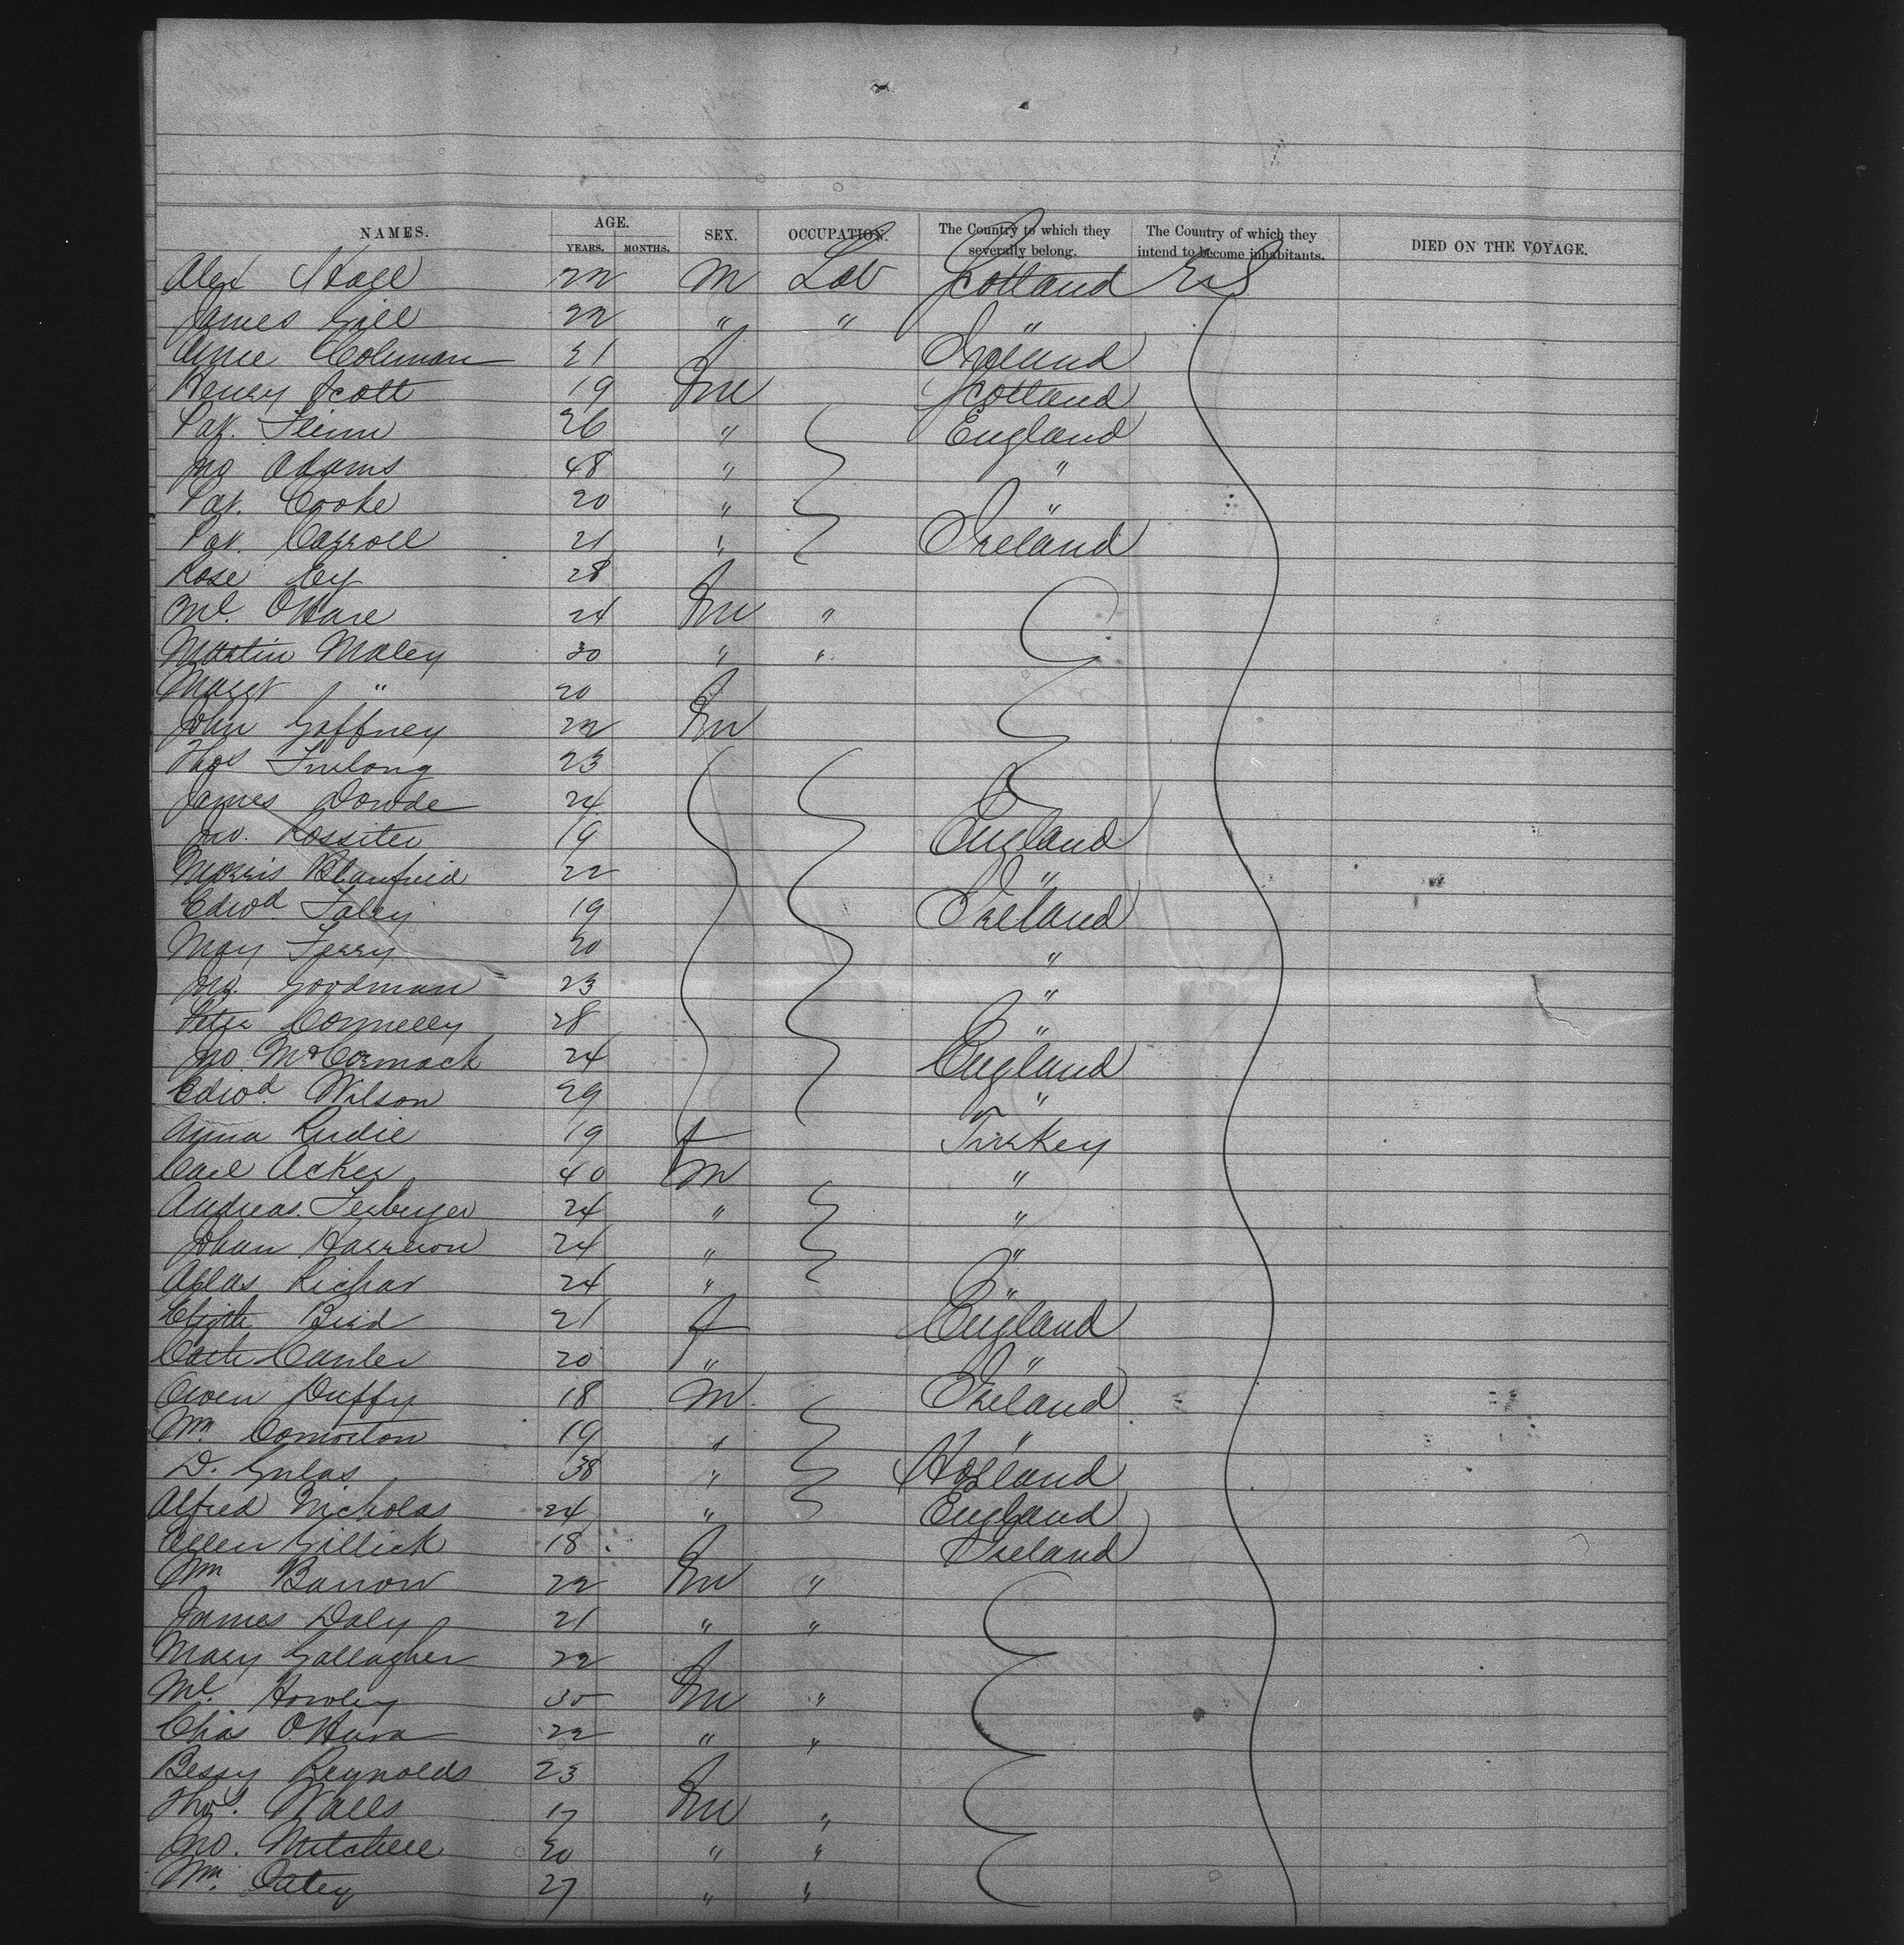 NAMES. AGE. YEARS. MONTHS. SEX. OCCUPATION. The Country to which they severally belong. The Country of which they intend to become inhabitants. DIED ON THE VOYAGE.
Alex 22 m Lab Scotland U S
James Gill 22 " " "
Annie Coleman 21 f Ireland
Henry Scott 19 m Scotland
Pat. Flinn 26 " England
Jno Adams 48 " "
Pat. Cooke 20 " "
Pat. Carroll 21 " Ireland
Rose 28 f
Ml. O'Hare 24 m "
Martin Maley 30 " "
Margt " 20 f
John Gaffney 22 m
Thos Furlong 23
James Dowde 24
Jno. Rossiter 19 England
Morris 22 "
Edwd Foley 19 Ireland
May Ferry 20 "
Jno. Goodman 23 "
Peter Connelly 28 "
Jno. McCormack 24 England
Edwd. Wilson 29 "
Anna Rudie 19 f Turkey
Carl Acker 40 m "
Andreas 24 " "
Johan 24 " "
24 " "
Elizth Bird 21 f England
Cath 20 " "
Owen Duffy 18 m Ireland
Wm. 19 " "
D. 38 " Holland
Alfred Nicholas 24 " England
Ellen Gillick 18 f Ireland
Wm Barron 22 m "
James Daly 21 " "
Mary Gallagher 22 f
Ml. Howley 30 m "
Chas O'Hara 22 " "
Bessy Reynolds 23 f
Thos. Walls 17 m "
Jno. Mitchell 20 " "
Wm. 27 " "